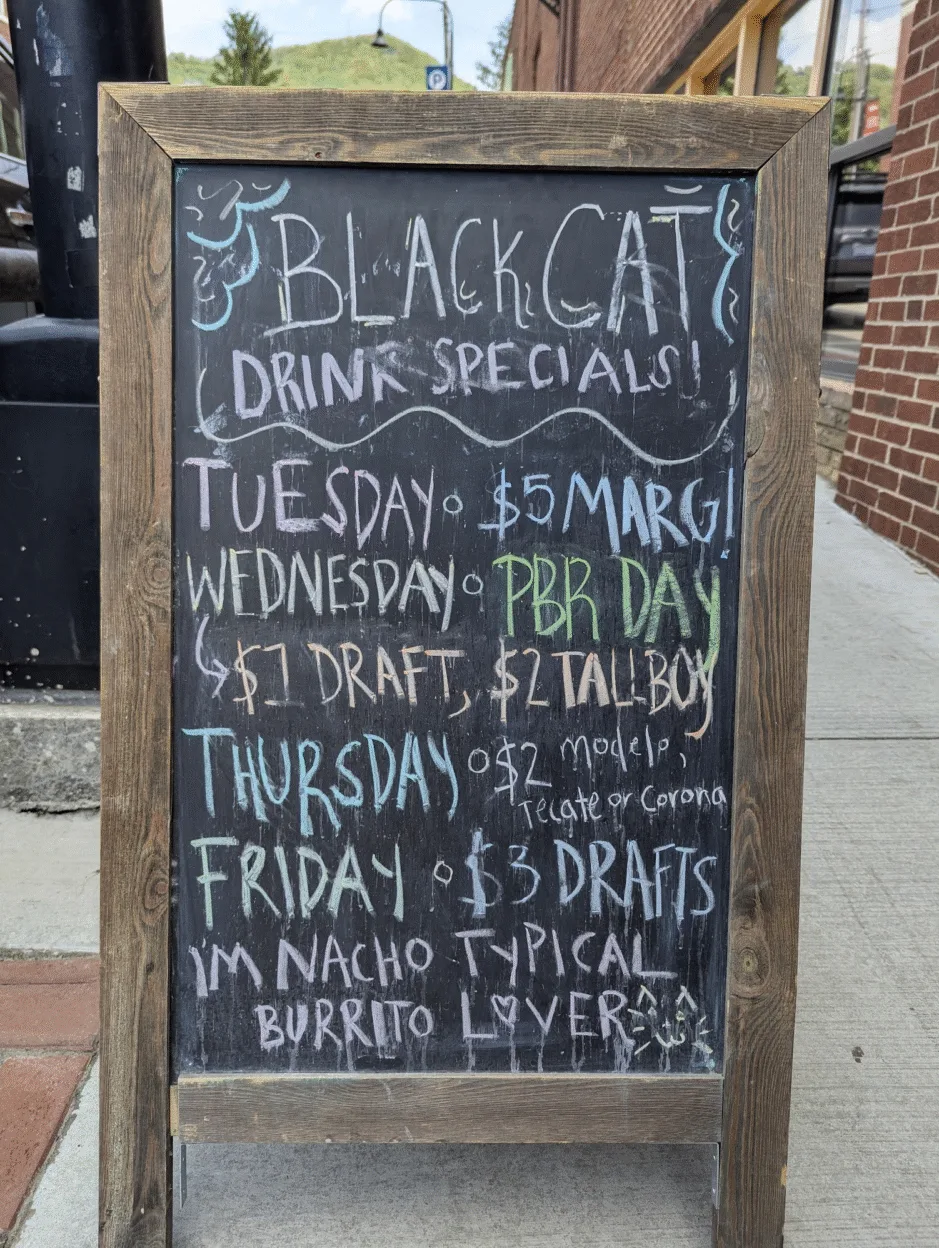 BLACK CAT
DRINK SPECIALS!
TUESDAY • $5 MARG!
WEDNESDAY • PBR DAY
$1 DRAFT, $2 TALLBOY
THURSDAY • $2 modelo,
Tecate or Corona
FRIDAY • $3 DRAFTS
I'M NACHO TYPICAL
BURRITO L♡VER
P